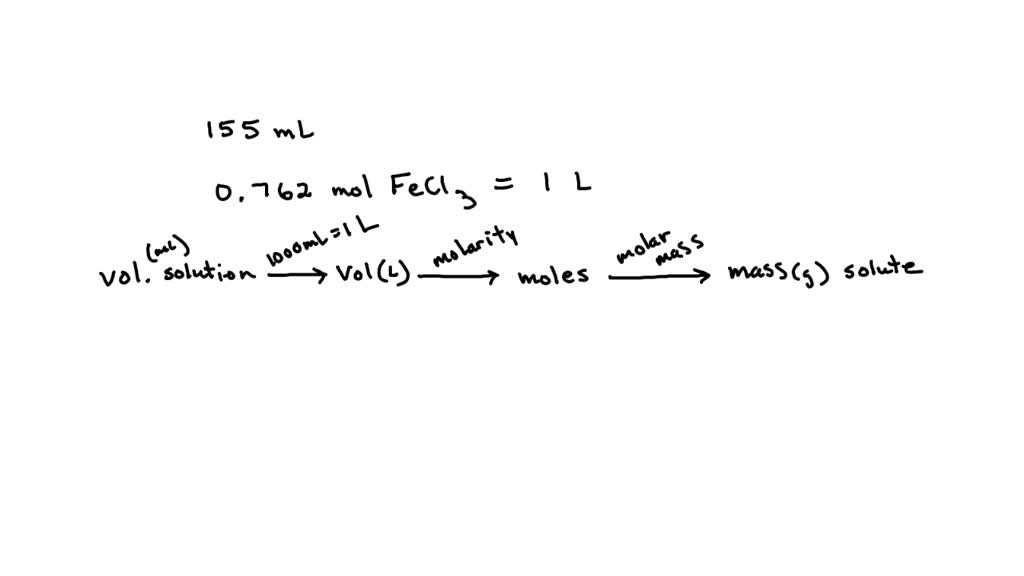 155 mL
0.762 mol FeCl₃ = 1 L
(mL) 1000mL=1L molarity molar mass
vol. solution → Vol(L) → moles → mass(g) solute